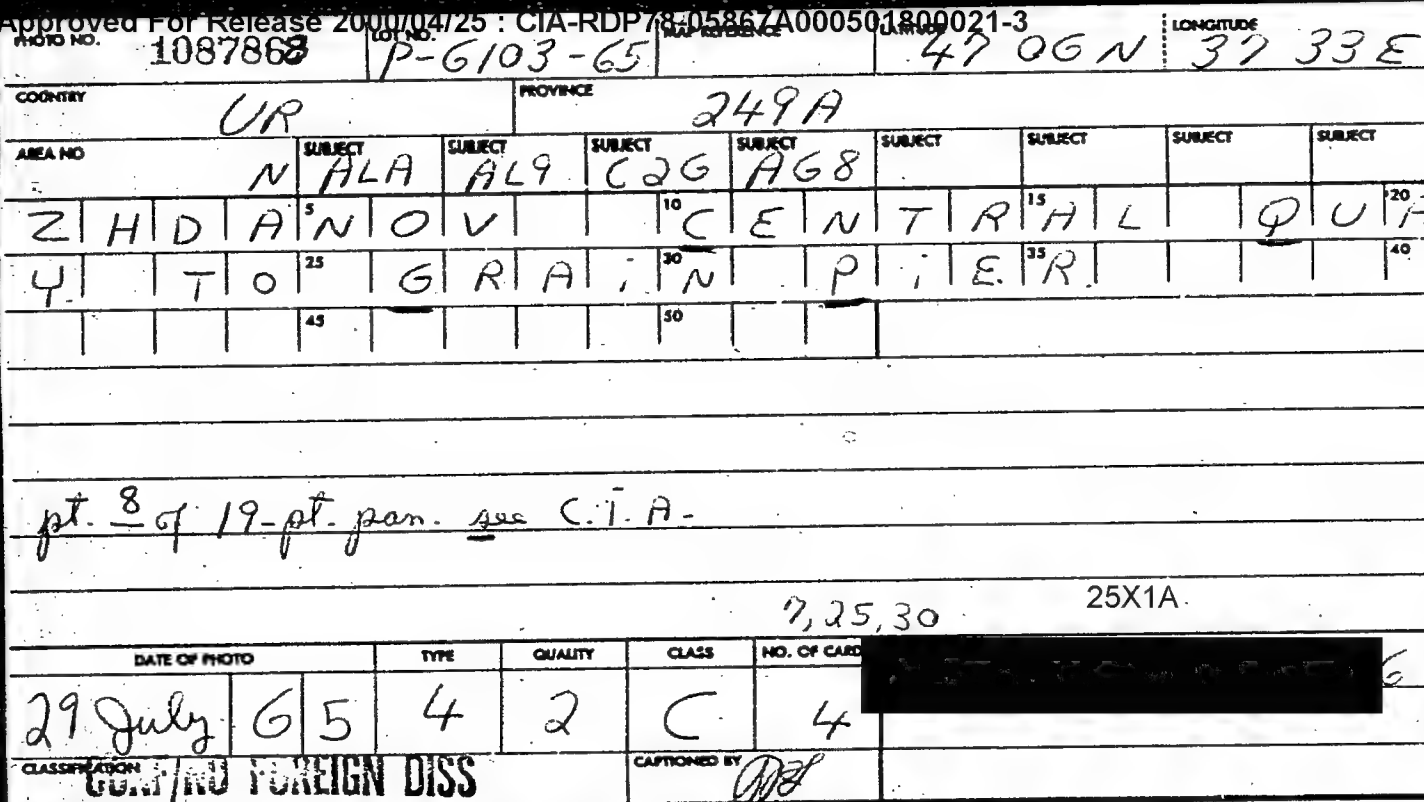 Approved For Release 2000/04/25 : CIA-RDP78-05867A000501800021-3
PHOTO NO. 1087868 LOT NO. P-6103-65 MAP REFERENCE LATITUDE 47 06 N LONGITUDE 37 33 E
COUNTRY UR PROVINCE 249A
AREA NO N SUBJECT ALA SUBJECT AL9 SUBJECT C2G SUBJECT AG8 SUBJECT SUBJECT SUBJECT SUBJECT
5 10 15 20
ZHDANOV CENTRAL QUA
25 30 35 40
Y TO GRAiN PiER
45 50
pt. 8 of 19-pt. pan. see C.I.A-
7,25,30 25X1A
DATE OF PHOTO TYPE QUALITY CLASS NO. OF CARD
29 July 65 4 2 C 4 6
CLASSIFICATION CONF/NO FOREIGN DISS CAPTIONED BY